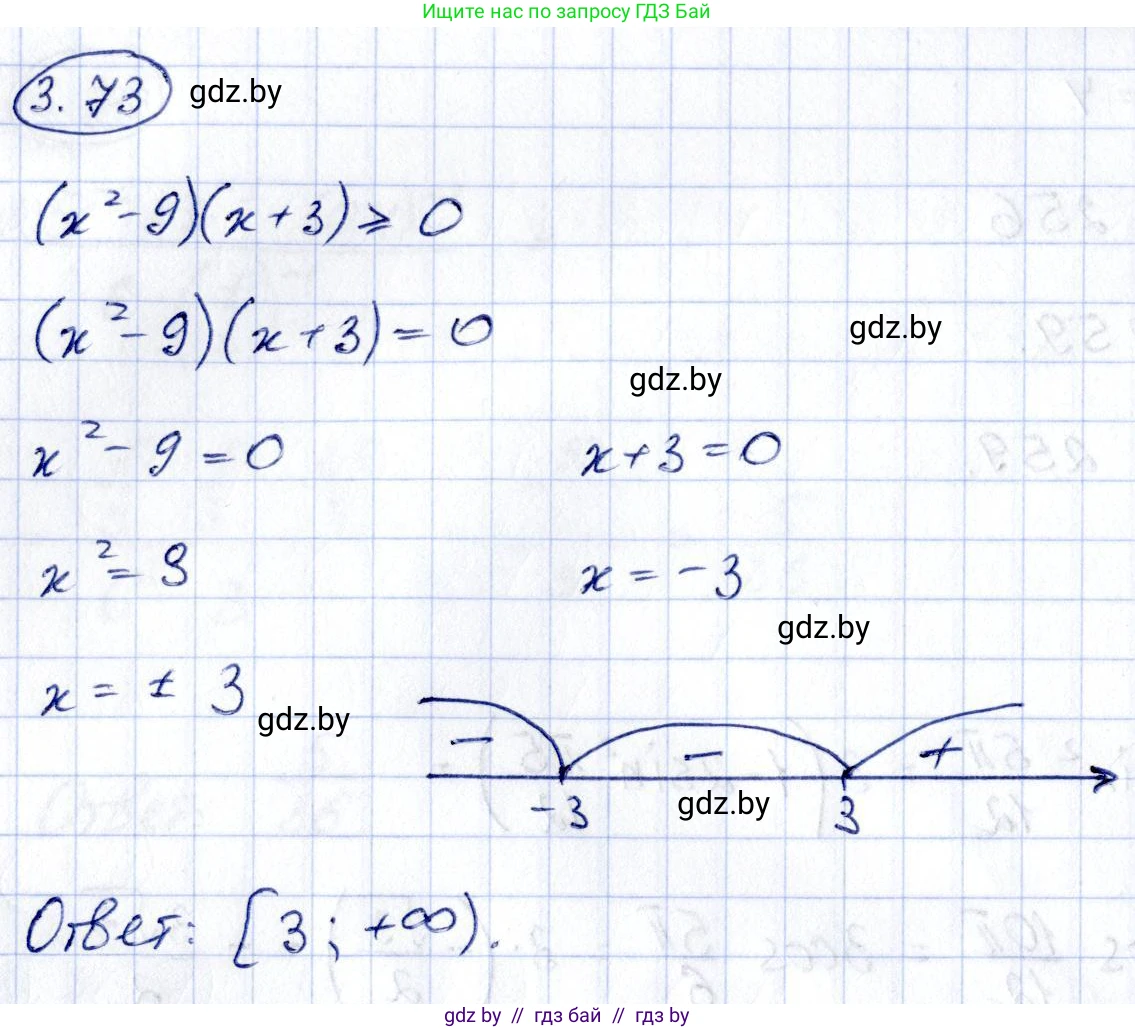 Ищите нас по запросу ГДЗ Бай
3.73 gdz.by
(x²-9)(x+3)⩾0
(x²-9)(x+3)=0
gdz.by
gdz.by
x²-9=0 x+3=0
x²=9 x=-3
gdz.by
x=±3
gdz.by
- - +
-3 gdz.by 3
Ответ: [3; +∞).
gdz by // гдз бай // гдз by